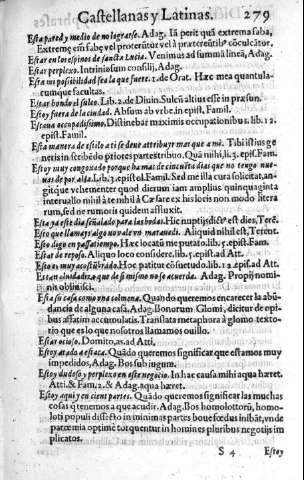 Castellanas y Latinas. 279
Esta pared y medio de no lograrse. Adag. Iā perit quā extrema faba,
Extremę eīm fabę vel proterūtur vel à prætereūtibˢ cōculcātur.
Estar en los espinos de sancta Lucia. Venimus ad summā lineā, Adag.
Estar perplexo. Intrinsiosum consilij, Adag.
Esta mi posibilidad sea la que fuere. 2. de Orat. Hæc mea quantula-
rumque facultas.
Estar hondo el sulco. Lib. 2. de Diuin. Sulcū altius esse
Estoy fuera de la ciudad. Absum ab vrbe. in epist. Famil.
Estaua occupadissimo. Distinebar maximis occupationibus. lib. 12.
epist. Fam.
Esta manera de estilo a ti se deue attribuyr mas que a mi. Tibi istius ge-
neris in scribēdo priores partes tribuo. Quā nihi, li. 15. epist. Fam.
Estoy muy congoxado porque ha mas de cincuēta dias que no tengo nue-
uas de por alla. Lib. 3. epist. ol. Famil. Sed me illa cura solicitat, an-
gitque vehementer quod dierum iam amplius quinquaginta
interuallo nihil à te nihil à Cæsare ex his locis non modo litera
rum, sed ne rumoris quidem affluxit.
Esta ya este dia señalado para las bodas. Hic nuptijs dictꝰ est dies, Terē.
Esto que llamays algo nueuo a ver Aliquid nihil est, Terent.
Esto digo en passatiempo. Hæc iocatū me putato. lib. 5. epist. Fam.
Estar de reposo. Aliquo loco considere, lib. 5. epist. ad Att.
Esto es muy acostūbrado. Hoc patitur cōsuetudo. lib. 12. epist. ad Att.
Estā oluidadizo que de si mismo no se acuerda. Adag. Proprij nomi-
nis obliuisci.
Esta su casa como vna colmena. Quando queremos encarecer la abū-
dancia de alguna casa, Adag. Bonorum Glomi, dicitur de opi-
bus affatim accumulatis. Translata metaphora à glomo texto-
rio que es lo que nosotros llamamos ouillo.
Estar ocioso. Domito, as. ad Atti.
Estoy atado a estaca. Quādo queremos significar que estamos muy
impedidos, Adag. Bos sub iugum.
Estoy dudoso y perplexo en este negocio. In hac causa mihi aqua hæret.
Atti. & Fam, 2. & Adag. aqua hæret.
Estoy aqui y en cient partes. Quādo queremos significar las muchas
cosas q̄ tenemos a que acudir. Adag. Bos homolottorū, homo-
loti populi dissecto in minimas partes boue fœdus inibāt, vn de
parœmia optimè torquentur in homines pluribus negotijs im
plicatos.
S 4 Estoy